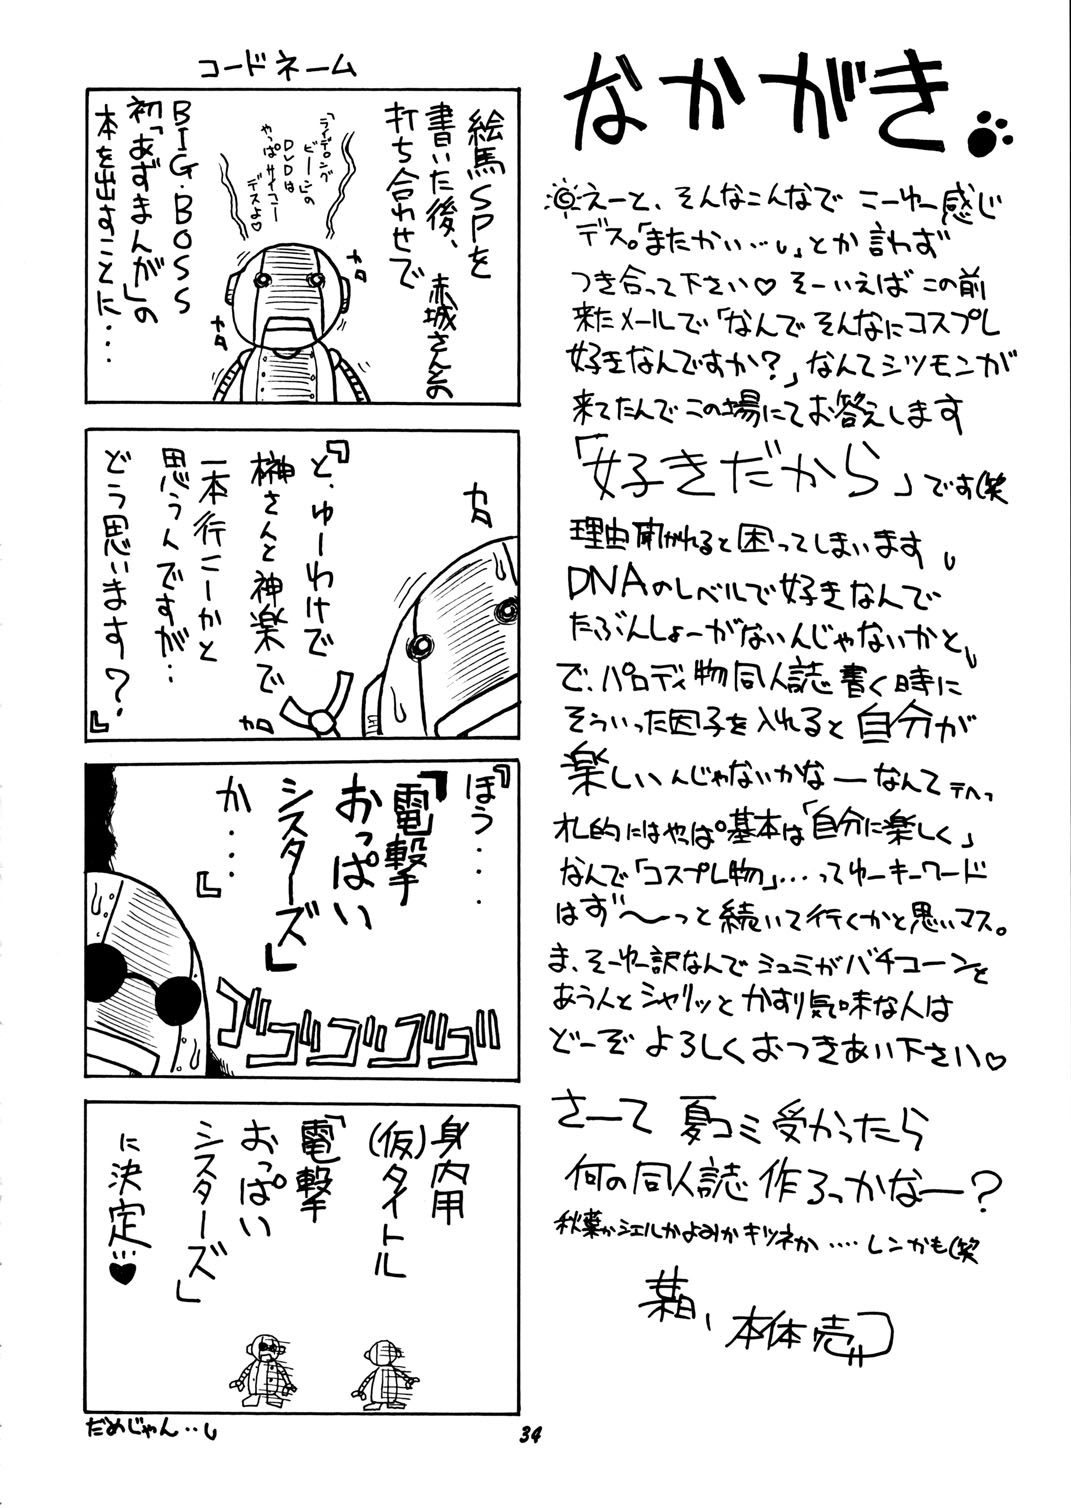 なかがき
えーと、そんなこんなで こーゆー感じ
デス。「またかい…」とか言わず
つき合って下さい♡ そーいえば この前
来たメールで「なんで そんなにコスプレ
好きなんですか?」なんてシツモンが
来てたんで この場にてお答えします
「好きだから」です(笑
理由聞かれると困ってしまいます
DNAのレベルで好きなんで
たぶんしょーがないんじゃないかと
で、パロディ物同人誌書く時に
そういった因子を入れると自分が
楽しいんじゃないかなーなんて
札的にはやっぱ基本は「自分に楽しく」
なんで「コスプレ物」…ってゆーキーワード
はず〜っと続いて行くかと思いマス。
ま、そーゆー訳なんで シュミがバチコーンと
あう人と シャリッと かすり気味な人は
どーぞ よろしくおつきあい下さい♡
さーて 夏コミ受かったら
何の同人誌作ろっかなー?
秋葉かシエルかよみかキツネか‥‥レンかも(笑
本体売
コードネーム
絵馬SPを
書いた後、赤城さんとの
打ち合わせで
「ライデュング
ビーン」の
DVDは
やっぱサイコー
デスよ♡
カタ
カタ
BIG・BOSS
初「あずまんが」の
本を出すことに‥‥
『と、ゆーわけで
榊さんと神楽で
一本行こーかと
思うんですが‥
どう思います?』
カタ
カタ
『ほう‥‥
「電撃
おっぱい
シスターズ」
か‥‥』
ゴゴゴゴゴ
身内用
(仮)タイトル
「電撃
おっぱい
シスターズ」
に決定…♥
だめじゃん‥
34